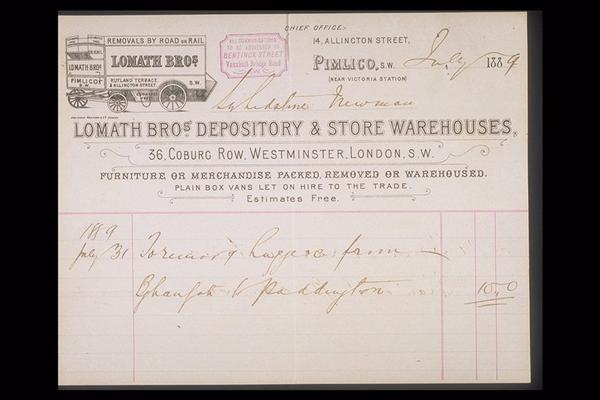 CHIEF OFFICE:-
REMOVALS BY ROAD OR RAIL
LOMATH BROS.
LOMATH BROS.
PIMLICO
S.W.
RUTLAND TERRACE
& ALLINGTON STREET.
S.W.
ALL COMMUNICATIONS
TO BE ADDRESSED TO
BENTINCK STREET
Vauxhall Bridge Road
S.W.
14, ALLINGTON STREET,
PIMLICO, S.W. July 1889
(NEAR VICTORIA STATION)
Newman
LOMATH BROS. DEPOSITORY & STORE WAREHOUSES,
36, COBURG ROW, WESTMINSTER, LONDON, S.W.
FURNITURE OR MERCHANDISE PACKED, REMOVED OR WAREHOUSED.
PLAIN BOX VANS LET ON HIRE TO THE TRADE.
Estimates Free.
1889
July 31 To removing luggage from
to Paddington 10.0